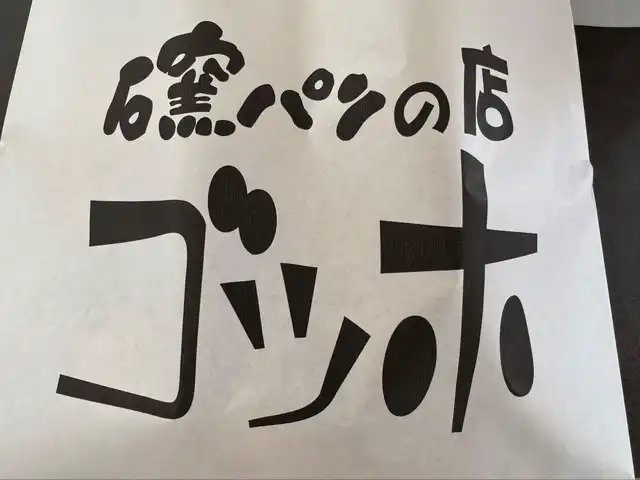 石窯パンの店
ゴッホ